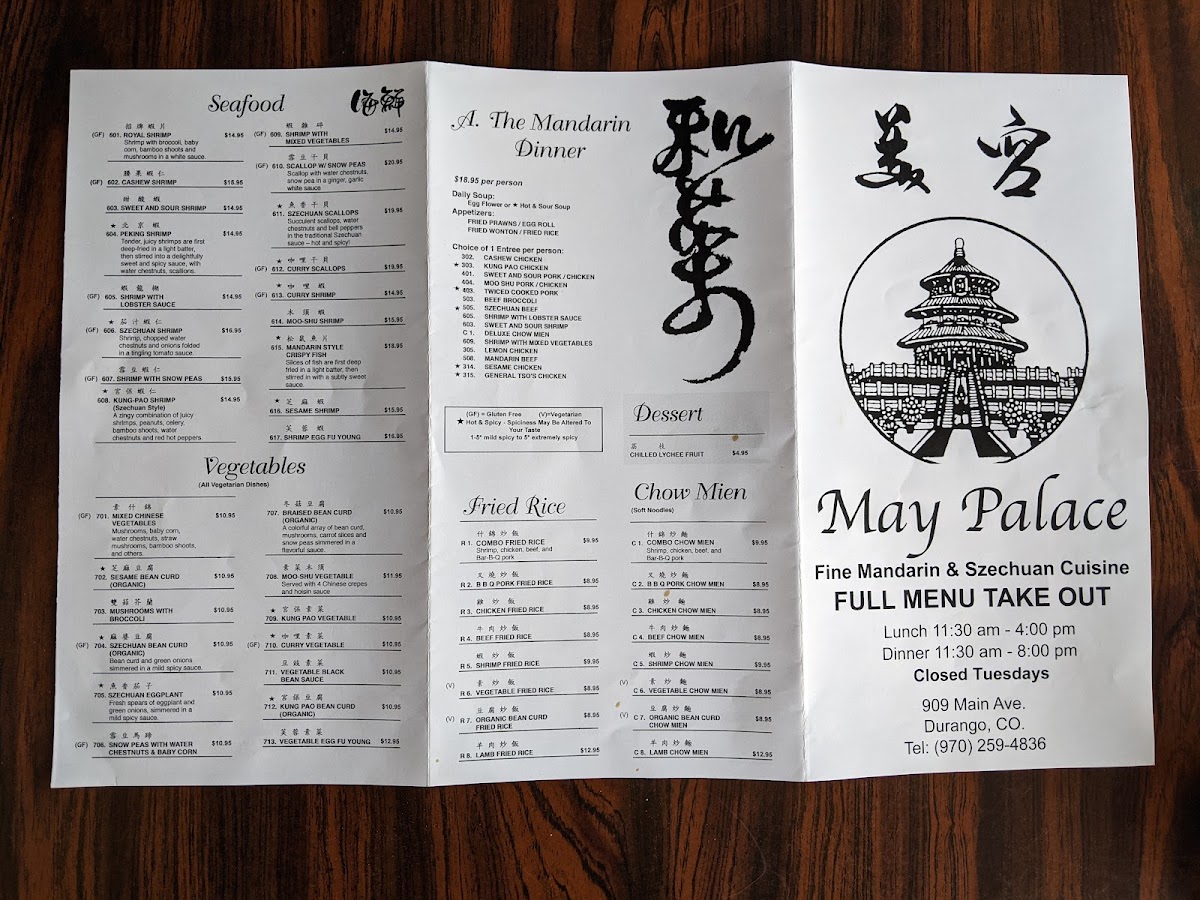 Seafood
海鮮
招牌蝦片
(GF) 601. ROYAL SHRIMP $14.95
Shrimp with broccoli, baby
corn, bamboo shoots and
mushrooms in a white sauce.
腰果蝦仁
(GF) 602. CASHEW SHRIMP $15.95
甜酸蝦
603. SWEET AND SOUR SHRIMP $14.95
★ 北京蝦
604. PEKING SHRIMP $14.95
Tender, juicy shrimps are first
deep-fried in a light batter,
then stirred into a delightfully
sweet and spicy sauce, with
water chestnuts, scallions.
蝦龍糊
(GF) 605. SHRIMP WITH $14.95
LOBSTER SAUCE
★ 茄汁蝦仁
(GF) 606. SZECHUAN SHRIMP $16.95
Shrimp, chopped water
chestnuts and onions folded
in a tingling tomato sauce.
雪豆蝦仁
(GF) 607. SHRIMP WITH SNOW PEAS $15.95
★ 宮保蝦仁
608. KUNG-PAO SHRIMP $14.95
(Szechuan Style)
A zingy combination of juicy
shrimps, peanuts, celery,
bamboo shoots, water
chestnuts and red hot peppers.
蝦雜碎
(GF) 609. SHRIMP WITH $14.95
MIXED VEGETABLES
雪豆干貝
(GF) 610. SCALLOP W/ SNOW PEAS $20.95
Scallop with water chestnuts,
snow pea in a ginger, garlic
white sauce
★ 魚香干貝
611. SZECHUAN SCALLOPS $19.95
Succulent scallops, water
chestnuts and bell peppers
in the traditional Szechuan
sauce – hot and spicy!
★ 咖哩干貝
(GF) 612. CURRY SCALLOPS $19.95
★ 咖哩蝦
(GF) 613. CURRY SHRIMP $14.95
木須蝦
614. MOO-SHU SHRIMP $15.95
★ 松鼠魚片
615. MANDARIN STYLE $18.95
CRISPY FISH
Slices of fish are first deep
fried in a light batter, then
stirred in with a subtly sweet
sauce.
★ 芝麻蝦
616. SESAME SHRIMP $15.95
芙蓉蝦
617. SHRIMP EGG FU YOUNG $16.95
Vegetables
(All Vegetarian Dishes)
素什錦
(GF) 701. MIXED CHINESE $10.95
VEGETABLES
Mushrooms, baby corn,
water chestnuts, straw
mushrooms, bamboo shoots,
and others.
★ 芝麻豆腐
702. SESAME BEAN CURD $10.95
(ORGANIC)
雙菇芥蘭
703. MUSHROOMS WITH $10.95
BROCCOLI
★ 麻婆豆腐
(GF) 704. SZECHUAN BEAN CURD $10.95
(ORGANIC)
Bean curd and green onions
simmered in a mild spicy sauce.
★ 魚香茄子
705. SZECHUAN EGGPLANT $10.95
Fresh spears of eggplant and
green onions, simmered in a
mild spicy sauce.
雪豆馬蹄
(GF) 706. SNOW PEAS WITH WATER $10.95
CHESTNUTS & BABY CORN
冬菇豆腐
707. BRAISED BEAN CURD $10.95
(ORGANIC)
A colorful array of bean curd,
mushrooms, carrot slices and
snow peas simmered in a
flavorful sauce.
素菜木須
708. MOO-SHU VEGETABLE $11.95
Served with 4 Chinese crepes
and hoisin sauce
★ 宮保素菜
709. KUNG PAO VEGETABLE $10.95
★ 咖哩素菜
(GF) 710. CURRY VEGETABLE $10.95
豆豉素菜
711. VEGETABLE BLACK $10.95
BEAN SAUCE
★ 宮保豆腐
712. KUNG PAO BEAN CURD $10.95
(ORGANIC)
芙蓉素菜
713. VEGETABLE EGG FU YOUNG $12.95
A. The Mandarin
Dinner
$18.95 per person
Daily Soup:
Egg Flower or ★ Hot & Sour Soup
Appetizers:
FRIED PRAWNS / EGG ROLL
FRIED WONTON / FRIED RICE
Choice of 1 Entree per person:
302. CASHEW CHICKEN
★ 303. KUNG PAO CHICKEN
401. SWEET AND SOUR PORK / CHICKEN
404. MOO SHU PORK / CHICKEN
★ 403. TWICED COOKED PORK
503. BEEF BROCCOLI
★ 505. SZECHUAN BEEF
605. SHRIMP WITH LOBSTER SAUCE
603. SWEET AND SOUR SHRIMP
C 1. DELUXE CHOW MIEN
609. SHRIMP WITH MIXED VEGETABLES
305. LEMON CHICKEN
508. MANDARIN BEEF
★ 314. SESAME CHICKEN
★ 315. GENERAL TSO'S CHICKEN
(GF) = Gluten Free (V)=Vegetarian
★ Hot & Spicy - Spiciness May Be Altered To
Your Taste
1-5* mild spicy to 5* extremely spicy
Dessert
荔枝
CHILLED LYCHEE FRUIT $4.95
Fried Rice
什錦炒飯
R 1. COMBO FRIED RICE $9.95
Shrimp, chicken, beef, and
Bar-B-Q pork
叉燒炒飯
R 2. B B Q PORK FRIED RICE $8.95
雞炒飯
R 3. CHICKEN FRIED RICE $8.95
牛肉炒飯
R 4. BEEF FRIED RICE $8.95
蝦炒飯
R 5. SHRIMP FRIED RICE $9.95
素炒飯
(V) R 6. VEGETABLE FRIED RICE $8.95
豆腐炒飯
(V) R 7. ORGANIC BEAN CURD $8.95
FRIED RICE
羊肉炒飯
R 8. LAMB FRIED RICE $12.95
Chow Mien
(Soft Noodles)
什錦炒麵
C 1. COMBO CHOW MIEN $9.95
Shrimp, chicken, beef, and
Bar-B-Q pork
叉燒炒麵
C 2. B B Q PORK CHOW MIEN $8.95
雞炒麵
C 3. CHICKEN CHOW MIEN $8.95
牛肉炒麵
C 4. BEEF CHOW MIEN $8.95
蝦炒麵
C 5. SHRIMP CHOW MIEN $9.95
素炒麵
(V) C 6. VEGETABLE CHOW MIEN $8.95
豆腐炒麵
(V) C 7. ORGANIC BEAN CURD $8.95
CHOW MIEN
羊肉炒麵
C 8. LAMB CHOW MIEN $12.95
美宮
May Palace
Fine Mandarin & Szechuan Cuisine
FULL MENU TAKE OUT
Lunch 11:30 am - 4:00 pm
Dinner 11:30 am - 8:00 pm
Closed Tuesdays
909 Main Ave.
Durango, CO.
Tel: (970) 259-4836